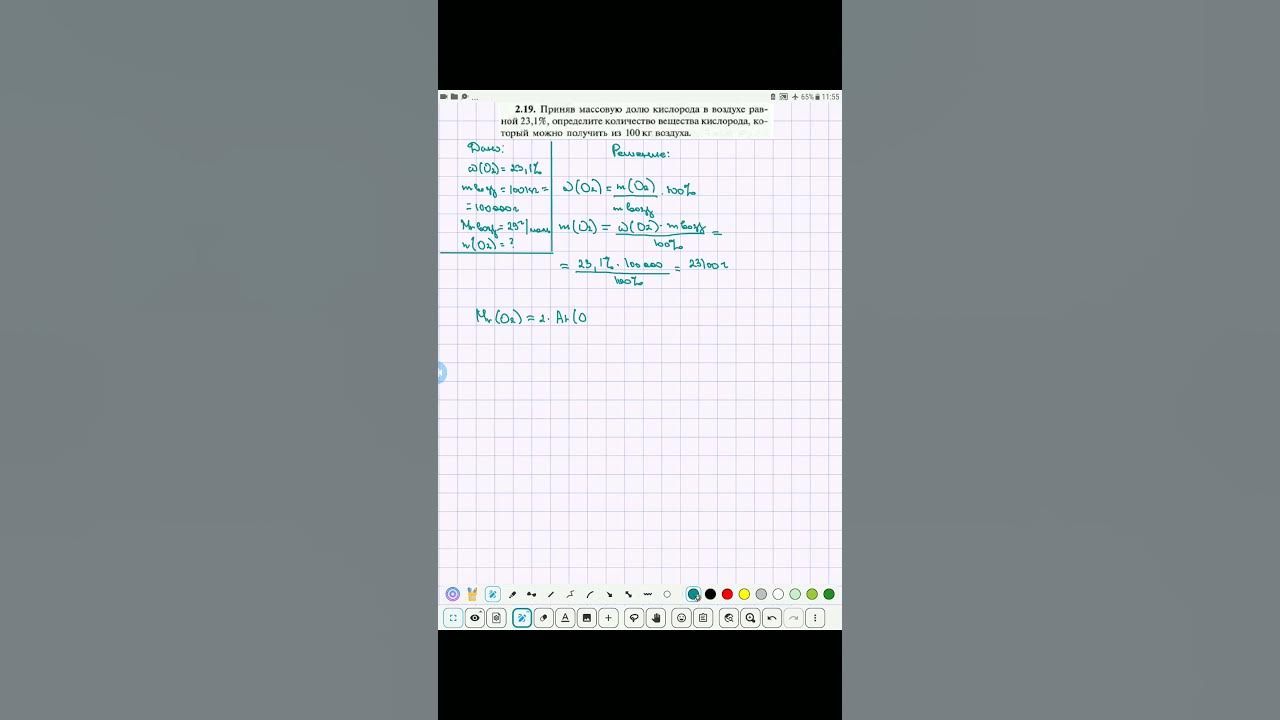 65% 11:55
2.19. Приняв массовую долю кислорода в воздухе рав-
ной 23,1%, определите количество вещества кислорода, ко-
торый можно получить из 100 кг воздуха.
Дано:
ω(O₂) = 23,1%
m возд = 100кг =
= 100000г
Mr возд = 29 г/моль
n(O₂) = ?
Решение:
ω(O₂) = m(O₂) / m возд · 100%
m(O₂) = ω(O₂) · m возд / 100% =
= 23,1% · 100 000 / 100% = 23100г
Mr(O₂) = 2 · Ar(O